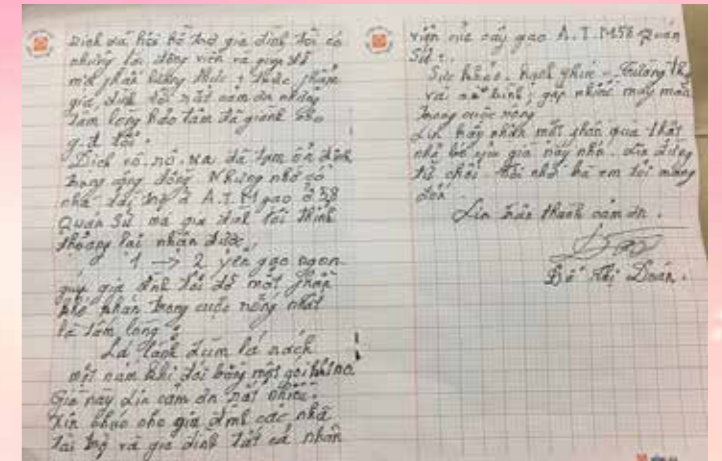 Dịch xã hội hỗ trợ gia đình tôi có
những lời động viên và giúp đỡ
một phần lương thực + thực phẩm
gia đình tôi rất cảm ơn những
tấm lòng hảo tâm đã giành cho
g.đ tôi.
Dịch cô. nô. na đã tạm ổn định
trong cộng đồng. Nhưng nhờ có
nhà tài trợ ở A.T.M gạo ở 58
Quán Sứ mà gia đình tôi thỉnh
thoảng lại nhận được
1 → 2 yến gạo ngon
giúp gia đình tôi đỡ một phần
khó khăn trong cuộc sống nhất
là tấm lòng:
Lá lành đùm lá rách
một nắm khi đói bằng một gói khi no.
Giờ này xin cảm ơn rất nhiều.
Xin chúc cho gia đình các nhà
tài trợ và gia đình tất cả nhân
viên của cây gạo A.T.M58 Quán
Sứ:.
Sức khỏe. hạnh phúc - Trường thọ
và an bình; gặp nhiều may mắn
trong cuộc sống
Xin hãy nhận một phần quà thật
nhỏ bé của già này nhé. Xin đừng
từ chối. tôi nhờ bà em tôi mang
đến
Xin trân thành cảm ơn.
Đỗ Thị Doán.